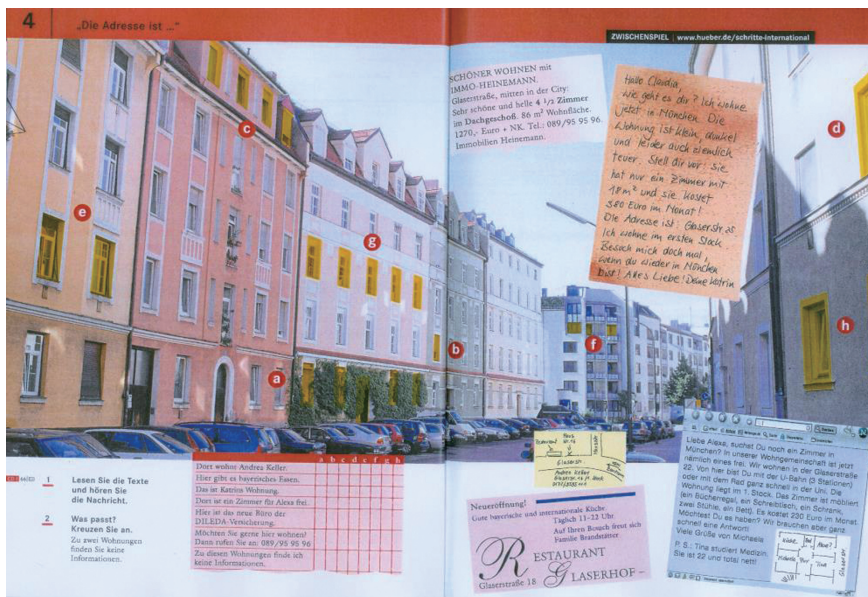 4
„Die Adresse ist ...“
ZWISCHENSPIEL | www.hueber.de/schritte-international
SCHÖNER WOHNEN mit
IMMO-HEINEMANN.
Glaserstraße, mitten in der City:
Sehr schöne und helle 4 1/2 Zimmer
im Dachgeschoß. 86 m² Wohnfläche.
1270,- Euro + NK. Tel.: 089/95 95 96.
Immobilien Heinemann.
Hallo Claudia,
wie geht es dir? Ich wohne
jetzt in München. Die
Wohnung ist klein, dunkel
und leider auch ziemlich
teuer. Stell dir vor: Sie
hat nur ein Zimmer mit
18 m² und sie kostet
580 Euro im Monat!
Die Adresse ist: Glaserstr. 25
Ich wohne im ersten Stock.
Besuch mich doch mal,
wenn du wieder in München
bist! Alles Liebe! Deine Katrin
c
d
e
g
h
b
f
a
1
Lesen Sie die Texte
und hören Sie
die Nachricht.
2
Was passt?
Kreuzen Sie an.
Zu zwei Wohnungen
finden Sie keine
Informationen.
a b c d e f g h
Dort wohnt Andrea Keller.
Hier gibt es bayerisches Essen.
Das ist Katrins Wohnung.
Dort ist ein Zimmer für Alexa frei.
Hier ist das neue Büro der
DILEDA-Versicherung.
Möchten Sie gerne hier wohnen?
Dann rufen Sie an: 089/95 95 96
Zu diesen Wohnungen finde ich
keine Informationen.
Glaserstr.
Andrea Keller
Neueröffnung!
Gute bayerische und internationale Küche
Täglich 11–22 Uhr
Auf Ihren Besuch freut sich
Familie Brandstätter
RESTAURANT
GLASERHOF –
Glaserstraße 18
Liebe Alexa, suchst Du noch ein Zimmer in
München? In unserer Wohngemeinschaft ist jetzt
nämlich eines frei. Wir wohnen in der Glaserstraße
22. Von hier bist Du mit der U-Bahn (3 Stationen)
oder mit dem Rad ganz schnell in der Uni. Die
Wohnung liegt im 1. Stock. Das Zimmer ist möbliert
(ein Bücherregal, ein Schreibtisch, ein Schrank,
zwei Stühle, ein Bett). Es kostet 200 Euro im Monat.
Möchtest Du es haben? Wir brauchen aber ganz
schnell eine Antwort!
Viele Grüße von Michaela
P. S.: Tina studiert Medizin.
Sie ist 22 und total nett!
Küche Bad
Michaela Flur Tina
Glaserstr.